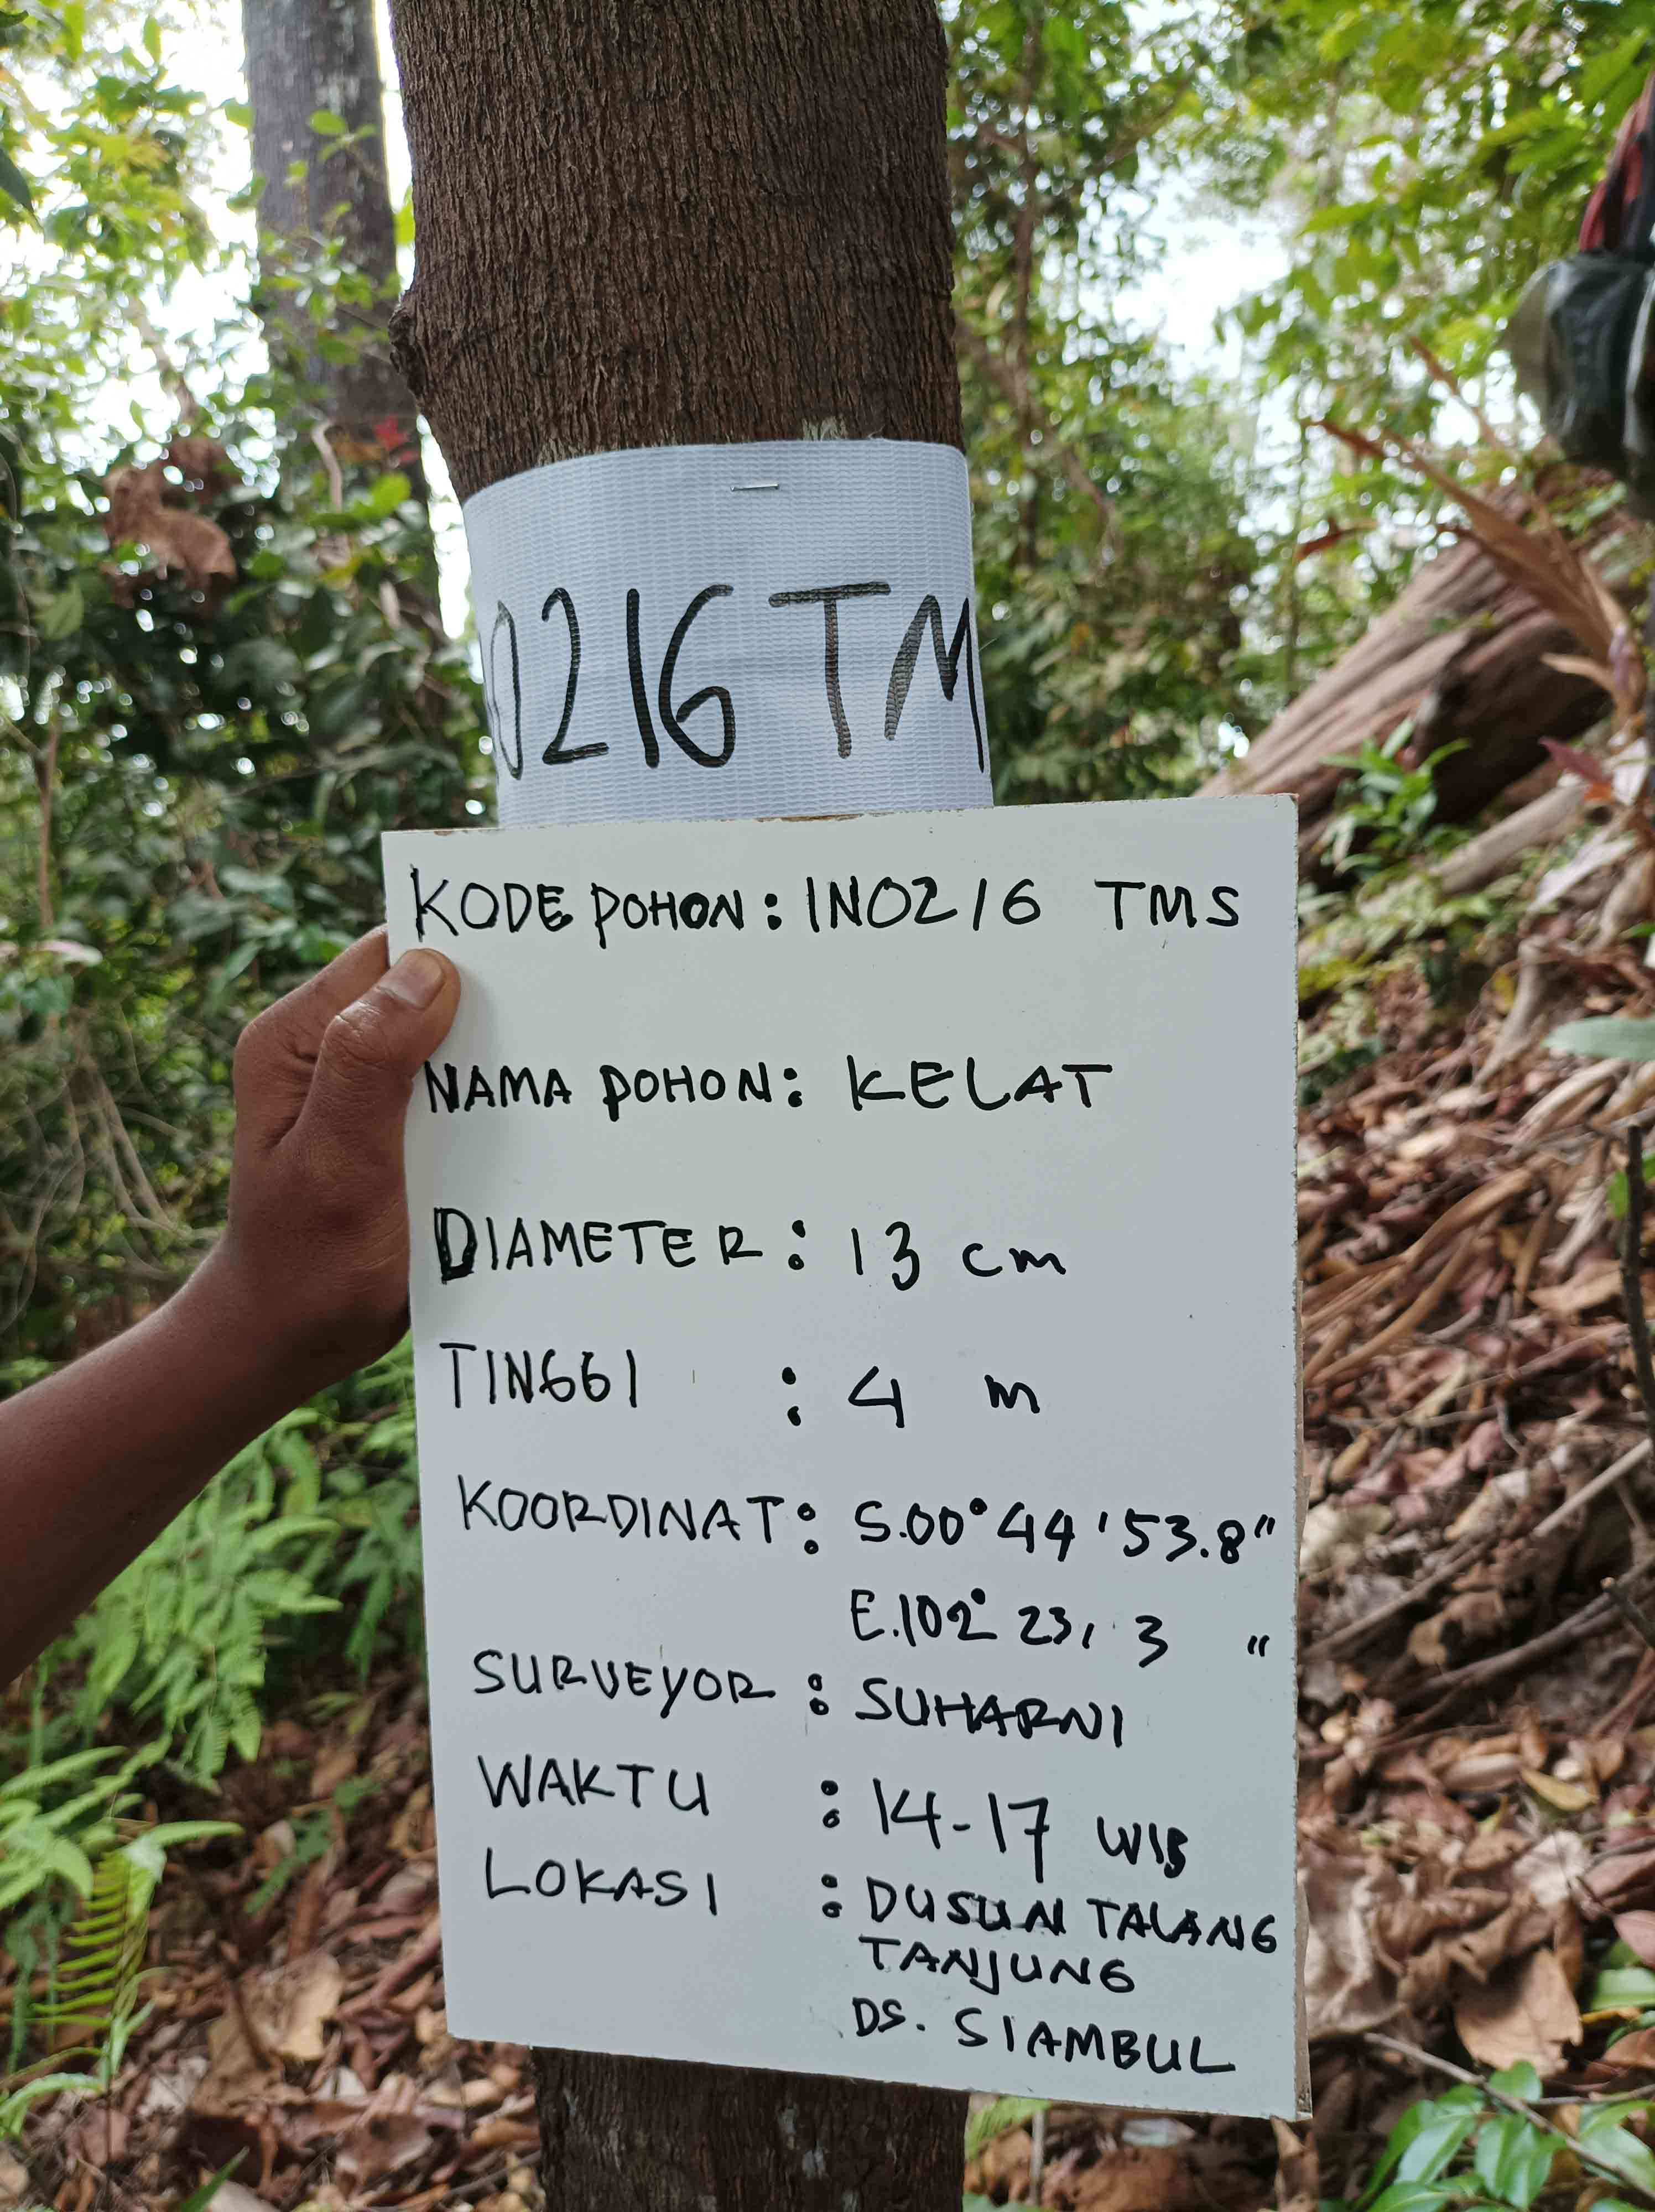 0216 TM
KODE POHON : IN0216 TMS
NAMA POHON : KELAT
DIAMETER : 13 cm
TINGGI : 4 m
KOORDINAT : S.00° 44 ' 53.8"
E.102° 23, 3 "
SURVEYOR : SUHARNI
WAKTU : 14-17 WIB
LOKASI : DUSUN TALANG
TANJUNG
DS. SIAMBUL